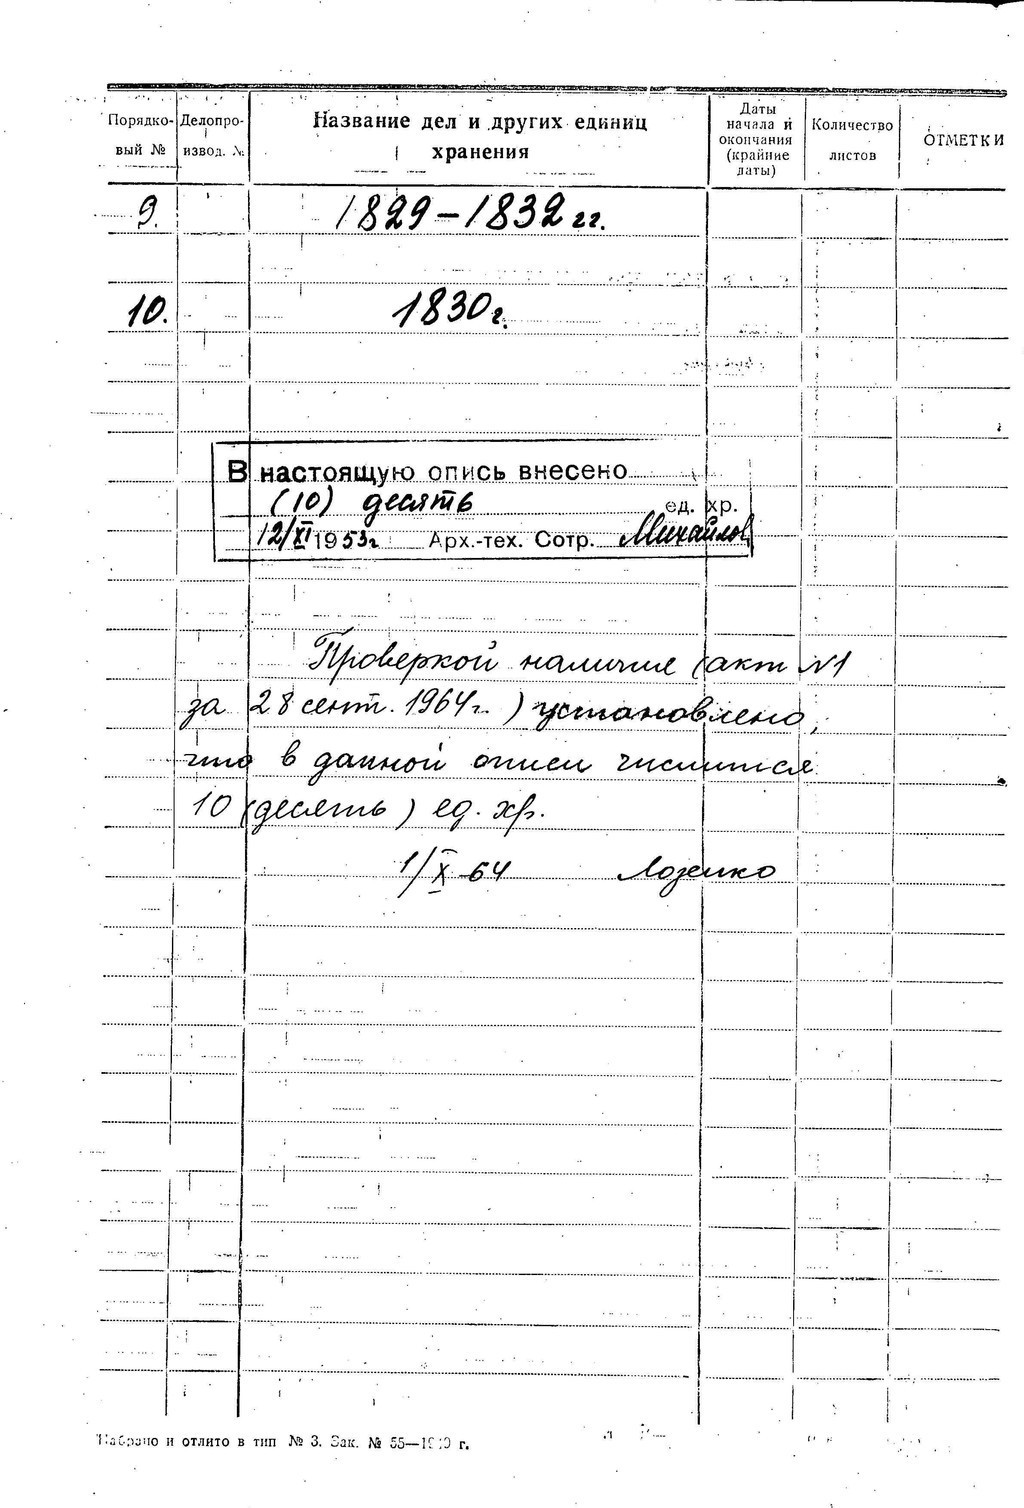 Порядковый № Делопроизвод. № Название дел и других единиц хранения Даты начала и окончания (крайние даты) Количество листов ОТМЕТКИ
9. 1829–1832 гг.
10. 1830 г.
В настоящую опись внесено
(10) десять ед. хр.
12/XI 1953 г. Арх.-тех. Сотр. Михайлов
Проверкой наличия (акт №1
за 28 сент. 1964 г.) установлено,
что в данной описи числится
10 (десять) ед. хр.
1/X-64
Набрано и отлито в тип № 3. Зак. № 55—